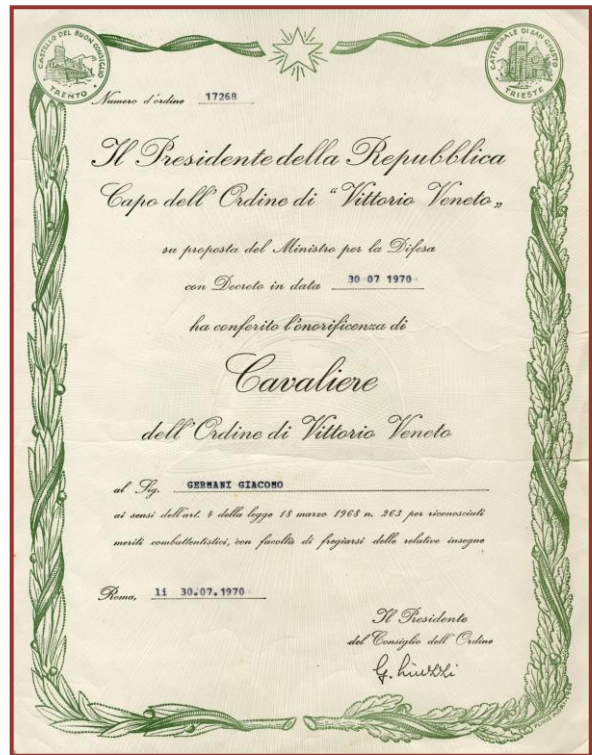 CASTELLO DEL BUON CONSIGLIO
TRENTO
CATTEDRALE DI SAN GIUSTO
TRIESTE
Numero d'ordine 17268
Il Presidente della Repubblica
Capo dell'Ordine di "Vittorio Veneto„
su proposta del Ministro per la Difesa
con Decreto in data 30 07 1970
ha conferito l'onorificenza di
Cavaliere
dell'Ordine di Vittorio Veneto
al Sig. GERMANI GIACOMO
ai sensi dell'art. 4 della legge 18 marzo 1968 n. 263 per riconosciuti
meriti combattentistici, con facoltà di fregiarsi delle relative insegne
Roma, li 30.07.1970
Il Presidente
del Consiglio dell'Ordine